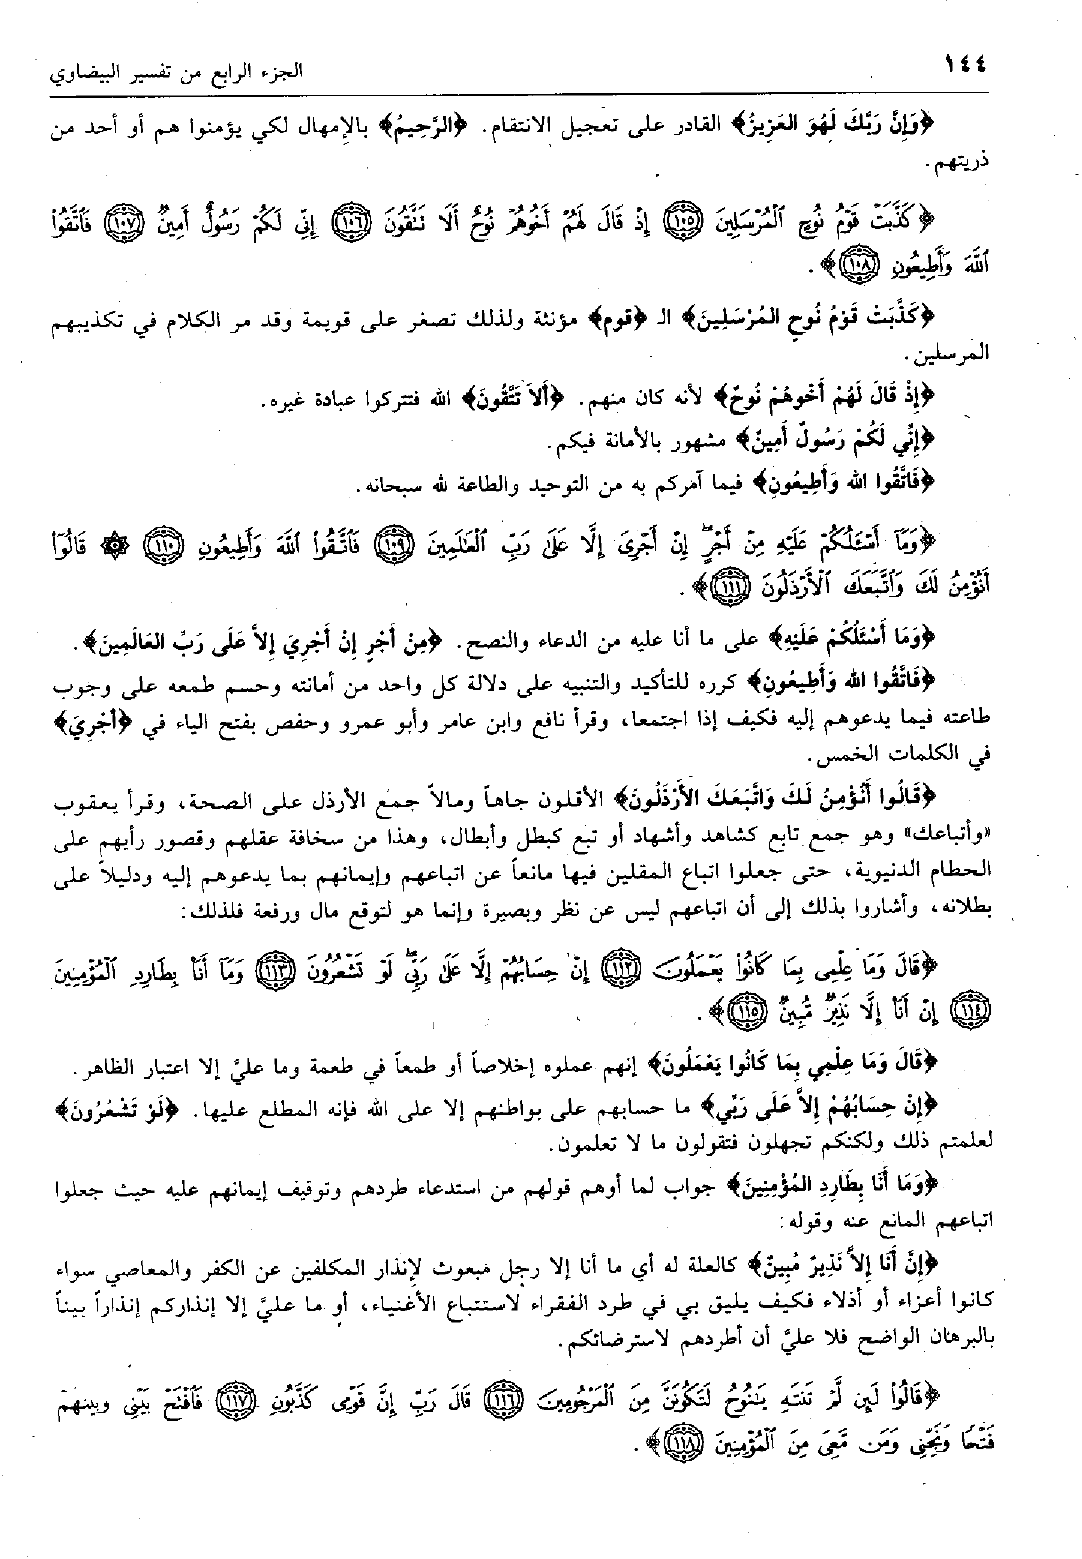 ١٤٤
الجزء الرابع من تفسير البيضاوي
﴿وَإِنَّ رَبَّكَ لَهُوَ العَزِيزُ﴾ القادر على تعجيل الانتقام. ﴿الرَّحِيمُ﴾ بالإمهال لكي يؤمنوا هم أو أحد من
ذريتهم.
﴿كَذَّبَتْ قَوْمُ نُوحٍ ٱلْمُرْسَلِينَ ١٠٥ إِذْ قَالَ لَهُمْ أَخُوهُمْ نُوحٌ أَلَا نَتَّقُونَ ١٠٦ إِنِّي لَكُمْ رَسُولٌ أَمِينٌ ١٠٧ فَٱتَّقُوا۟
ٱللَّهَ وَأَطِيعُونِ ١٠٨﴾.
﴿كَذَّبَتْ قَوْمُ نُوحٍ المُرْسَلِينَ﴾ الـ ﴿قوم﴾ مؤنثة ولذلك تصغر على قويمة وقد مر الكلام في تكذيبهم
المرسلين.
﴿إِذْ قَالَ لَهُمْ أَخُوهُمْ نُوحٌ﴾ لأنه كان منهم. ﴿أَلاَ تَتَّقُونَ﴾ الله فتتركوا عبادة غيره.
﴿إِنِّي لَكُمْ رَسُولٌ أَمِينٌ﴾ مشهور بالأمانة فيكم.
﴿فَاتَّقُوا الله وَأَطِيعُونِ﴾ فيما آمركم به من التوحيد والطاعة لله سبحانه.
﴿وَمَآ أَسْـَٔلُكُمْ عَلَيْهِ مِنْ أَجْرٍ إِنْ أَجْرِيَ إِلَّا عَلَىٰ رَبِّ ٱلْعَٰلَمِينَ ١٠٩ فَٱتَّقُوا۟ ٱللَّهَ وَأَطِيعُونِ ١١٠ ۞ قَالُوٓا۟
أَنُؤْمِنُ لَكَ وَٱتَّبَعَكَ ٱلْأَرْذَلُونَ ١١١﴾.
﴿وَمَا أَسْئَلُكُمْ عَلَيْهِ﴾ على ما أنا عليه من الدعاء والنصح. ﴿مِنْ أَجْرٍ إِنْ أَجْرِيَ إِلاَّ عَلَى رَبِّ العَالَمِينَ﴾.
﴿فَاتَّقُوا الله وَأَطِيعُونِ﴾ كرره للتأكيد والتنبيه على دلالة كل واحد من أمانته وحسم طمعه على وجوب
طاعته فيما يدعوهم إليه فكيف إذا اجتمعا، وقرأ نافع وابن عامر وأبو عمرو وحفص بفتح الياء في ﴿أَجْرِيَ﴾
في الكلمات الخمس.
﴿قَالُوا أَنُؤْمِنُ لَكَ وَاتَّبَعَكَ الأَرْذَلُونَ﴾ الأقلون جاهاً ومالاً جمع الأرذل على الصحة، وقرأ يعقوب
«وأتباعك» وهو جمع تابع كشاهد وأشهاد أو تبع كبطل وأبطال، وهذا من سخافة عقلهم وقصور رأيهم على
الحطام الدنيوية، حتى جعلوا اتباع المقلين فيها مانعاً عن اتباعهم وإيمانهم بما يدعوهم إليه ودليلاً على
بطلانه، وأشاروا بذلك إلى أن اتباعهم ليس عن نظر وبصيرة وإنما هو لتوقع مال ورفعة فلذلك:
﴿قَالَ وَمَا عِلْمِى بِمَا كَانُوا۟ يَعْمَلُونَ ١١٢ إِنْ حِسَابُهُمْ إِلَّا عَلَىٰ رَبِّى لَوْ تَشْعُرُونَ ١١٣ وَمَآ أَنَا۠ بِطَارِدِ ٱلْمُؤْمِنِينَ
١١٤ إِنْ أَنَا۠ إِلَّا نَذِيرٌ مُّبِينٌ ١١٥﴾.
﴿قَالَ وَمَا عِلْمِي بِمَا كَانُوا يَعْمَلُونَ﴾ إنهم عملوه إخلاصاً أو طمعاً في طعمة وما عليَّ إلا اعتبار الظاهر.
﴿إِنْ حِسَابُهُمْ إِلاَّ عَلَى رَبِّي﴾ ما حسابهم على بواطنهم إلا على الله فإنه المطلع عليها. ﴿لَوْ تَشْعُرُونَ﴾
لعلمتم ذلك ولكنكم تجهلون فتقولون ما لا تعلمون.
﴿وَمَا أَنَا بِطَارِدِ المُؤْمِنِينَ﴾ جواب لما أوهم قولهم من استدعاء طردهم وتوقيف إيمانهم عليه حيث جعلوا
اتباعهم المانع عنه وقوله:
﴿إِنَّ أَنَا إِلاَّ نَذِيرٌ مُبِينٌ﴾ كالعلة له أي ما أنا إلا رجل مبعوث لإِنذار المكلفين عن الكفر والمعاصي سواء
كانوا أعزاء أو أذلاء فكيف يليق بي في طرد الفقراء لاستتباع الأغنياء، أو ما عليَّ إلا إنذاركم إنذاراً بيناً
بالبرهان الواضح فلا عليَّ أن أطردهم لاسترضائكم.
﴿قَالُوا۟ لَئِن لَّمْ تَنتَهِ يَٰنُوحُ لَتَكُونَنَّ مِنَ ٱلْمَرْجُومِينَ ١١٦ قَالَ رَبِّ إِنَّ قَوْمِى كَذَّبُونِ ١١٧ فَٱفْتَحْ بَيْنِى وَبَيْنَهُمْ
فَتْحًا وَنَجِّنِى وَمَن مَّعِىَ مِنَ ٱلْمُؤْمِنِينَ ١١٨﴾.